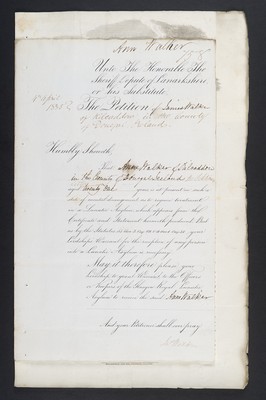 Ann Walker
Unto The Honorable The
Sheriff Depute of Lanarkshire
or his Substitute
5th April
1855
The Petition of James Walker
of in the County
of Donegal, Ireland.
Humbly Sheweth,
That Ann Walker of
in the County of Donegal Ireland
aged Twenty One years is at present in such a
state of mental derangement as to require treatment
in a Lunatic Asylum which appears from the
Certificate and Statement herewith produced But
as by the Statutes
Lordships Warrant for the reception of any person
into a Lunatic Asylum is necessary.
May it therefore please your
Lordship to grant Warrant to the Officers
or Keepers of the Glasgow Royal Lunatic
Asylum to receive the said Ann Walker
And your Petitioner shall ever pray